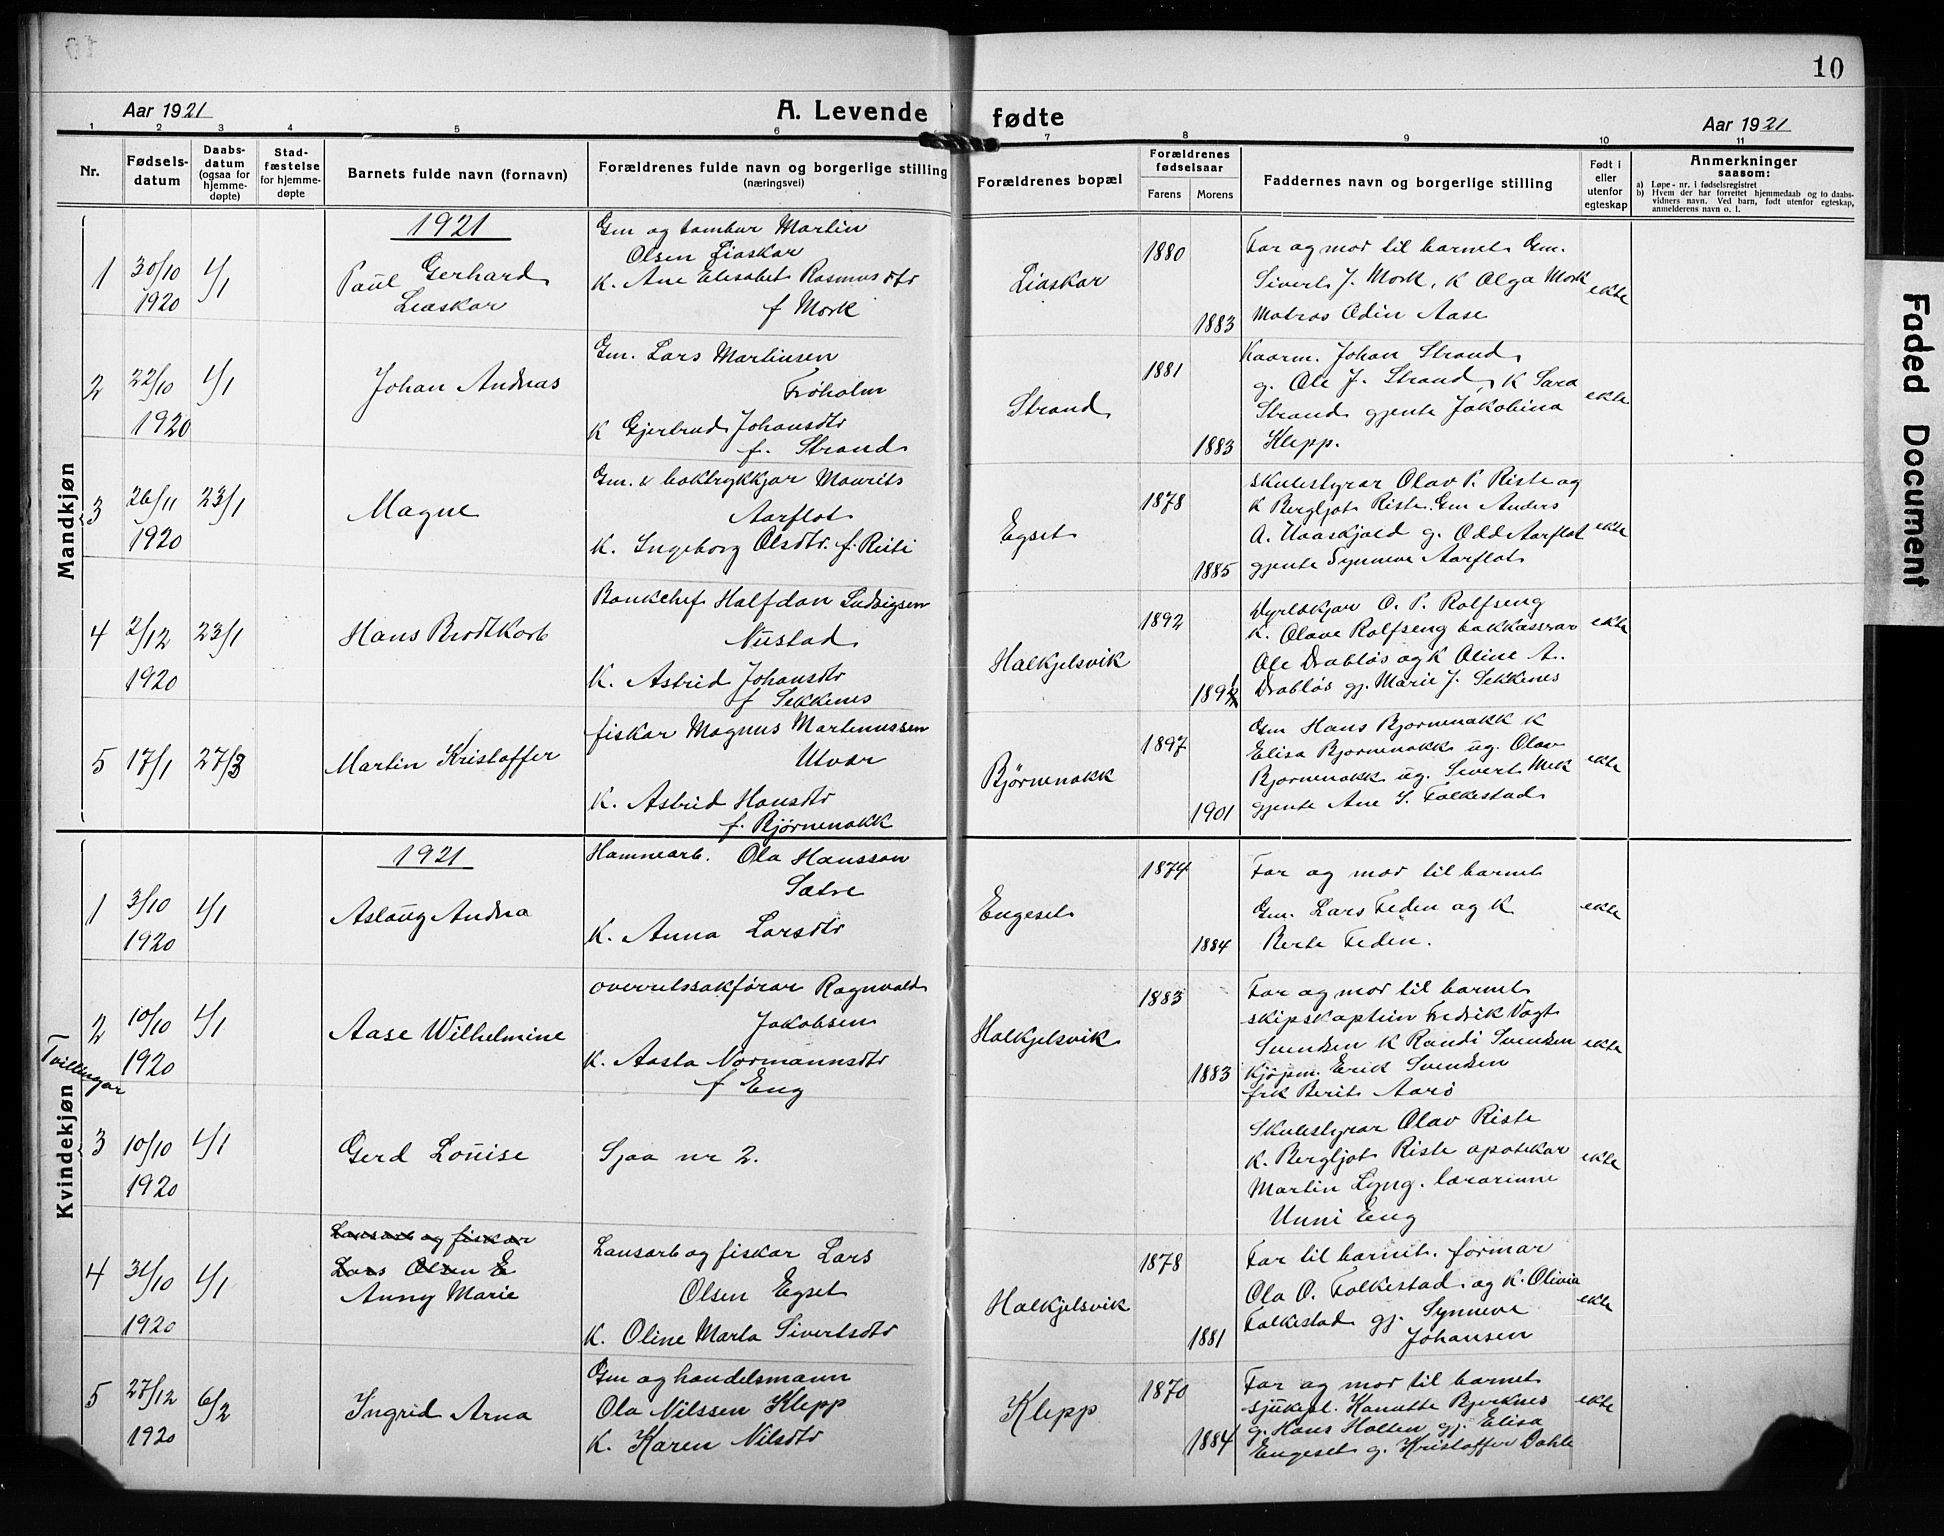 10
Aar 1921
A. Levende fødte
Aar 1921
1 2 3 4 5 6 7 8 9 10 11
Nr.
Fødselsdatum
Daabsdatum (ogsaa for hjemmedøpte)
Stadfæstelse for hjemmedøpte
Barnets fulde navn (fornavn)
Forældrenes fulde navn og borgerlige stilling
(næringsvei)
Forældrenes bopæl
Forældrenes fødselsaar
Farens Morens
Faddernes navn og borgerlige stilling
Født i eller utenfor egteskap
Anmerkninger
saasom:
a) Løpe-nr. i fødselsregistret
b) Hvem der har forrettet hjemmedaab og to daabsvidners navn. Ved barn, født utenfor egteskap, anmelderens navn o. l.
Mandkjøn
1921
1 30/10 1920 1/1
Paul Gerhard
Liaskar
Gm og tambur Martin
Olsen Liaskar
K. Ane Elisabet Rasmusdtr
f Mork
Liaskar
1880
1883
Far og mor til barnet Gm.
Sivert J. Mork, K Olga Mork
Matros Odin Aase
ekte
2 22/10 1920 1/1
Johan Andreas
Gm. Lars Martinsen
Frøholm
K Gjertrud Johansdtr
f. Strand
Strand
1881
1883
Kaarm. Johan Strand
g. Ole J. Strand, K Sara
Strand gjente Jakobina
Klepp.
ekte
3 26/11 1920 23/1
Magne
Gm. & boktrykkjar Maurits
Aarflot
K. Ingeborg Olsdtr. f. Risti
Egset
1878
1885
Skulestyrar Olav P. Riste og
K Bergljot Riste. Gm Anders
A. Vaaskjold g. Odd Aarflot
gjente Synneve Aarflot
ekte
4 2/12 1920 23/1
Hans Brodtkorb
Bankchef Halfdan Ludvigsen
Nustad
K. Astrid Johansdtr
f Sekkenes
Halkjelsvik
1892
189
Dyrlækjar O. P. Rolfseng
K. Olave Rolfseng bakkasserar
Ole Drabløs og K Oline A.
Drabløs gj. Marie J. Sekkenes
ekte
5 17/1 27/3
Martin Kristoffer
fiskar Magnus Martinussen
Utvær
K. Astrid Hansdtr
f. Bjørnenakk
Bjørnenakk
1897
1901
Gm Hans Bjørnenakk K
Elisa Bjørnenakk ug. Olav
Bjørnenakk ug. Sivert Mek
gjente Ane S. Folkestad
ekte
Kvindekjøn
1921
1 3/10 1920 1/1
Aslaug Andrea
Hamnearb. Ola Hansson
Sætre
K. Anna Larsdtr
Engeset
1874
1884
Far og mor til barnet
Gm. Lars Feden og K
Berte Feden.
ekte
Tvillingar
2 10/10 1920 1/1
Aase Wilhelmine
overretssakførar Ragnvald
Jakobsen
K. Aasta Normannsdtr
f Eng
Halkjelsvik
1883
1883
Far og mor til barnet
skipskaptein Fredrik Vogt
Svendsen K Randi Svendsen
Kjøpm. Erik Svendsen
frk Berit Aarø
ekte
3 10/10 1920 1/1
Gerd Louise
Sjaa nr 2.
Skulestyrar Olav Riste
K. Bergljot Riste apotekar
Martin Lyng. lærarinne
Unni Eng
ekte
4 31/10 1920 1/1
Lausarb og fiskar
Lars Olsen E
Anny Marie
Lausarb og fiskar Lars
Olsen Egset
K. Oline Marta Sivertsdtr
Halkjelsvik
1878
1881
Far til barnet. formar
Ola O. Folkestad og K. Olivia
Folkestad gj. Synneve
Johansen
ekte
5 27/12 1920 6/2
Ingrid Arna
Gm og handelsmann
Ola Nilssen Klepp
K. Karen Nilsdtr
Klepp
1870
1884
Far og mor til barnet
sjukepl. Kanutte Bjerknes
g. Hans Holten gj. Elisa
Engeset g. Kristoffer Dahle
ekte
Faded Document